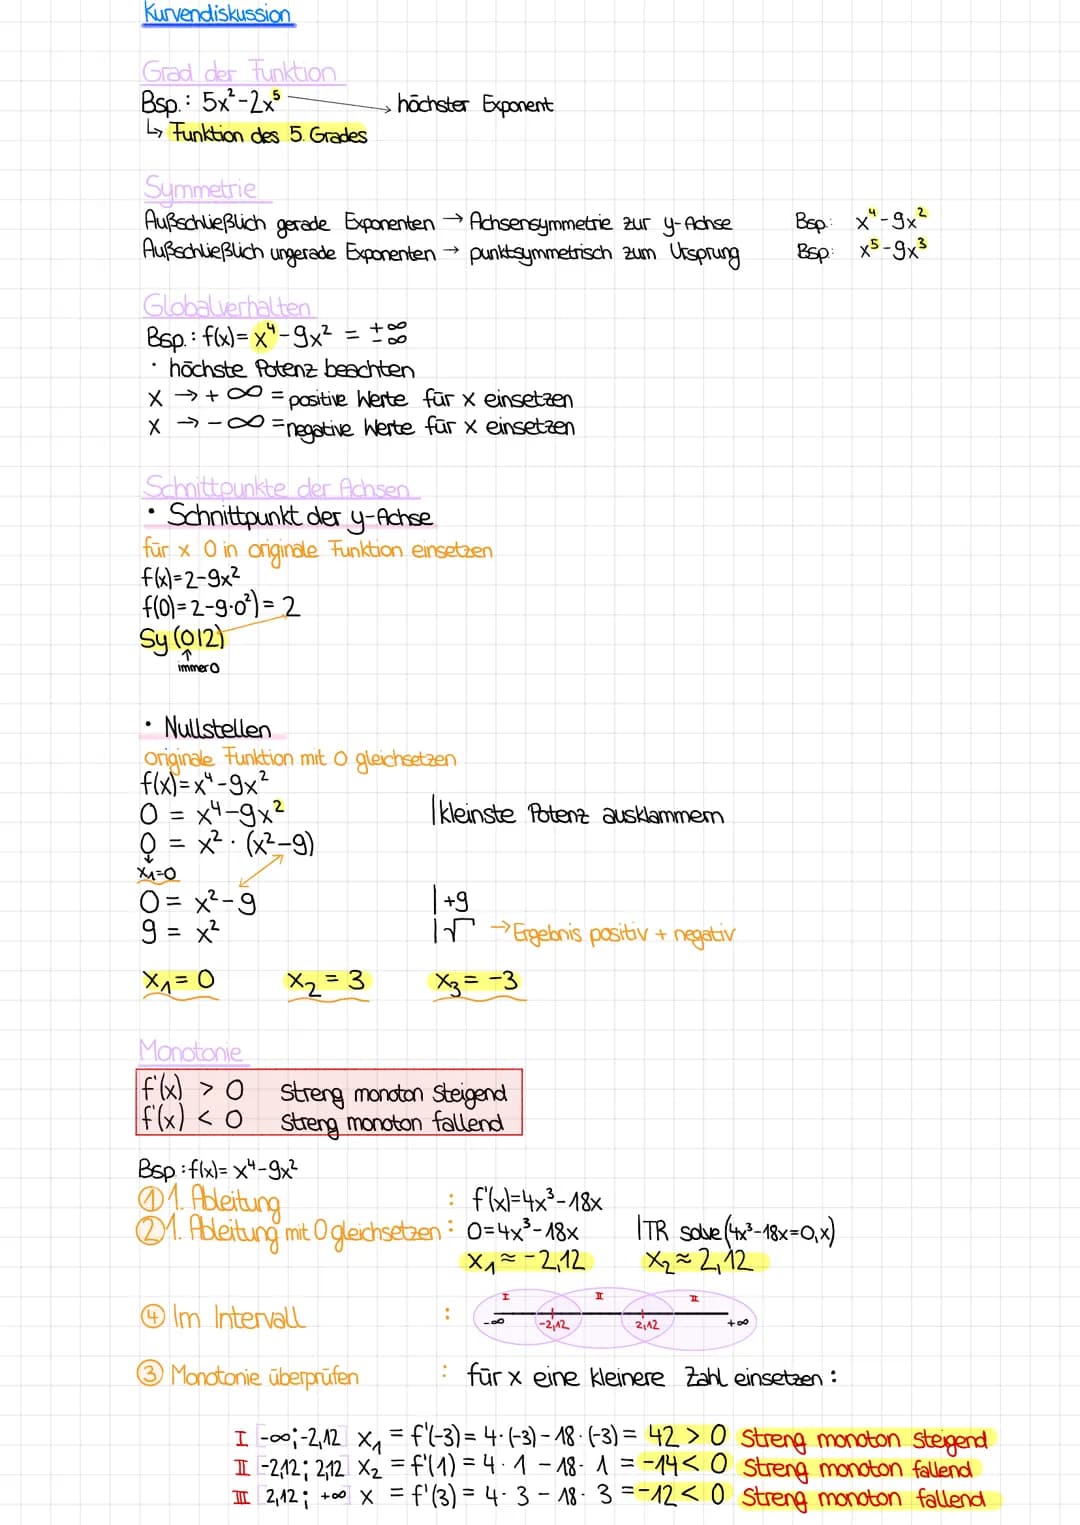 Kurvendiskussion
Grad der Funktion
Bsp.: 5x²-2x⁵ → höchster Exponent
↳ Funktion des 5. Grades
Symmetrie
Außschließlich gerade Exponenten → Achsensymmetrie zur y-Achse Bsp: x⁴-9x²
Außschließlich ungerade Exponenten → punktsymmetrisch zum Ursprung Bsp: x⁵-9x³
Globalverhalten
Bsp.: f(x)= x⁴-9x² = +∞ -∞
• höchste Potenz beachten
x → +∞ = positive Werte für x einsetzen
x → -∞ = negative Werte für x einsetzen
Schnittpunkte der Achsen
• Schnittpunkt der y-Achse
für x 0 in originale Funktion einsetzen
f(x)=2-9x²
f(0)=2-9·0²)=2
Sy(0|2)
↑
immer 0
• Nullstellen
originale Funktion mit 0 gleichsetzen
f(x)=x⁴-9x²
0 = x⁴-9x² |kleinste Potenz ausklammern
0 = x² · (x²-9)
↓
x₁=0
0 = x²-9 |+9
9 = x² |√ → Ergebnis positiv + negativ
x₁=0 x₂=3 x₃=-3
Monotonie
f'(x) > 0 streng monoton steigend
f'(x) < 0 streng monoton fallend
Bsp: f(x)=x⁴-9x²
① 1. Ableitung : f'(x)=4x³-18x
② 1. Ableitung mit 0 gleichsetzen: 0=4x³-18x |TR solve(4x³-18x=0,x)
x₁≈-2,12 x₂≈2,12
④ Im Intervall : I II II
-∞ -2,12 2,12 +∞
③ Monotonie überprüfen : für x eine kleinere Zahl einsetzen:
I -∞;-2,12 x₁ = f'(-3)= 4·(-3)-18·(-3)= 42 > 0 streng monoton steigend
II -2,12;2,12 x₂ = f'(1) = 4·1-18·1 = -14 < 0 streng monoton fallend
III 2,12; +∞ x = f'(3) = 4·3-18·3 = -12 < 0 streng monoton fallend